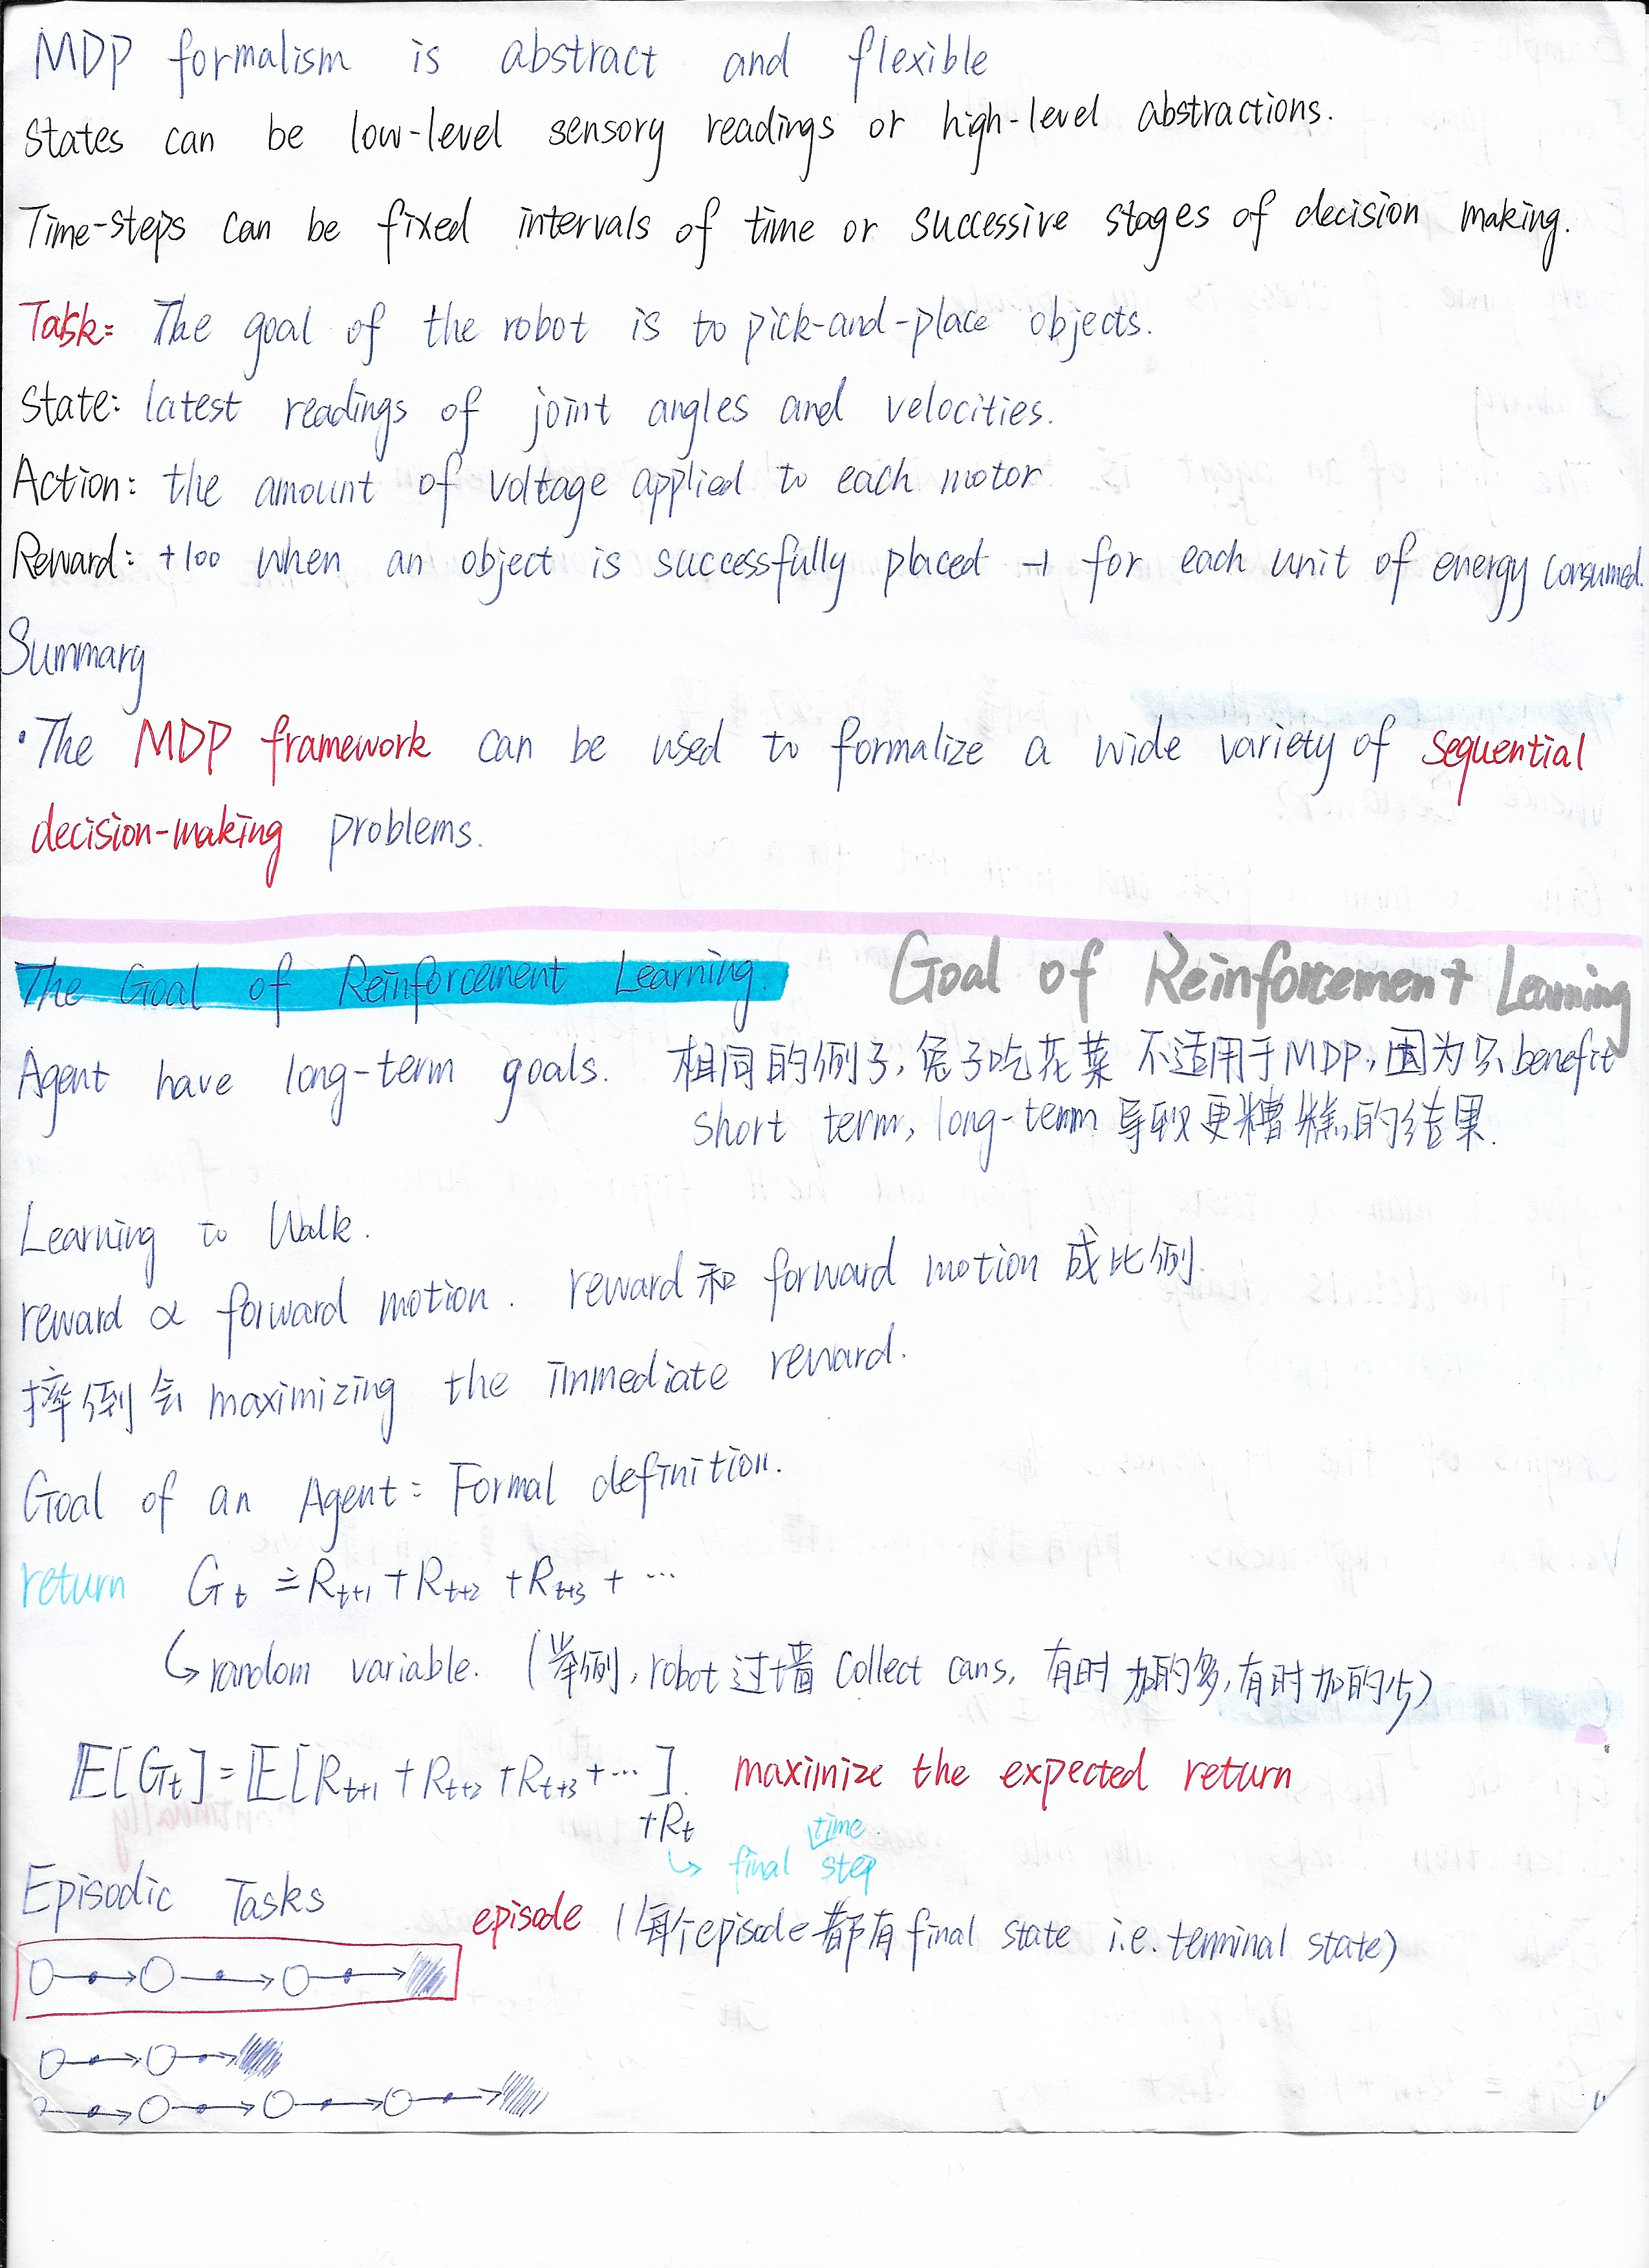 MDP formalism is abstract and flexible
States can be low-level sensory readings or high-level abstractions.
Time-steps can be fixed intervals of time or successive stages of decision making.
Task: The goal of the robot is to pick-and-place objects.
State: latest readings of joint angles and velocities.
Action: the amount of voltage applied to each motor
Reward: +100 when an object is successfully placed -1 for each unit of energy consumed.
Summary
• The MDP framework can be used to formalize a wide variety of sequential
decision-making problems.
The Goal of Reinforcement Learning. Goal of Reinforcement Learning
Agent have long-term goals. 相同的例子, 兔子吃花菜 不适用于MDP, 因为只 benefit
short term, long-term 导致更糟糕的结果.
Learning to Walk.
reward ∝ forward motion. reward 和 forward motion 成比例
摔倒会 maximizing the immediate reward.
Goal of an Agent: Formal definition.
return Gt ≐ Rt+1 + Rt+2 + Rt+3 + ⋯
↳ random variable. (举例, robot 过墙 collect cans, 有时加的多, 有时加的少)
𝔼[Gt] = 𝔼[Rt+1 + Rt+2 + Rt+3 + ⋯ ]. maximize the expected return
+Rt time
↳ final step
Episodic Tasks
episode (每个episode都有 final state i.e. terminal state)